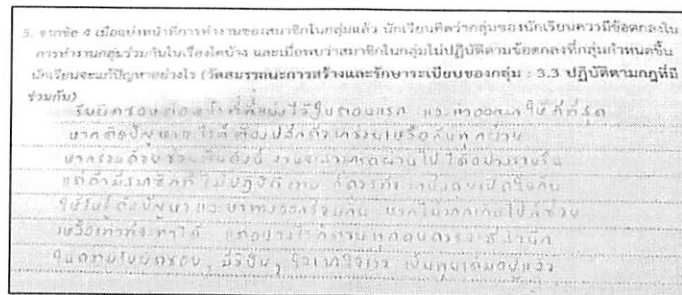 5. จากข้อ 4 เมื่อแบ่งหน้าที่การทำงานของสมาชิกในกลุ่มแล้ว นักเรียนคิดว่ากลุ่มของนักเรียนควรมีข้อตกลงใน
การทำงานกลุ่มร่วมกันในเรื่องใดบ้าง และเมื่อพบว่าสมาชิกในกลุ่มไม่ปฏิบัติตามข้อตกลงที่กลุ่มกำหนดขึ้น
นักเรียนจะแก้ปัญหาอย่างไร (วัดสมรรถนะการสร้างและรักษาระเบียบของกลุ่ม : 3.3 ปฏิบัติตามกฎที่มี
ร่วมกัน)
รับผิดชอบต่อหน้าที่ที่แบ่งไว้ในตอนแรก และทำออกมาให้ดีที่สุด
หากติดปัญหาอะไรก็ต้องปรึกษาช่วยเหลือกันทุกฝ่าย
หากร่วมด้วยช่วยกันดังนี้ งานจะสามารถผ่านไปได้อย่างราบรื่น
แต่ถ้ามีสมาชิกที่ไม่ปฏิบัติตาม ก็ควรที่จะมานั่งคุยเปิดใจกัน
ให้รับรู้ถึงปัญหาและหาทางออกร่วมกัน หากไม่มากเกินไปก็ช่วย
เหลือเท่าที่จะทำได้ แต่อย่างไรก็ตามทุกคนควรจะมีสำนึก
ในความรับผิดชอบ, มีวินัย, ใจเขาใจเรา เป็นทุนเดิมอยู่แล้ว